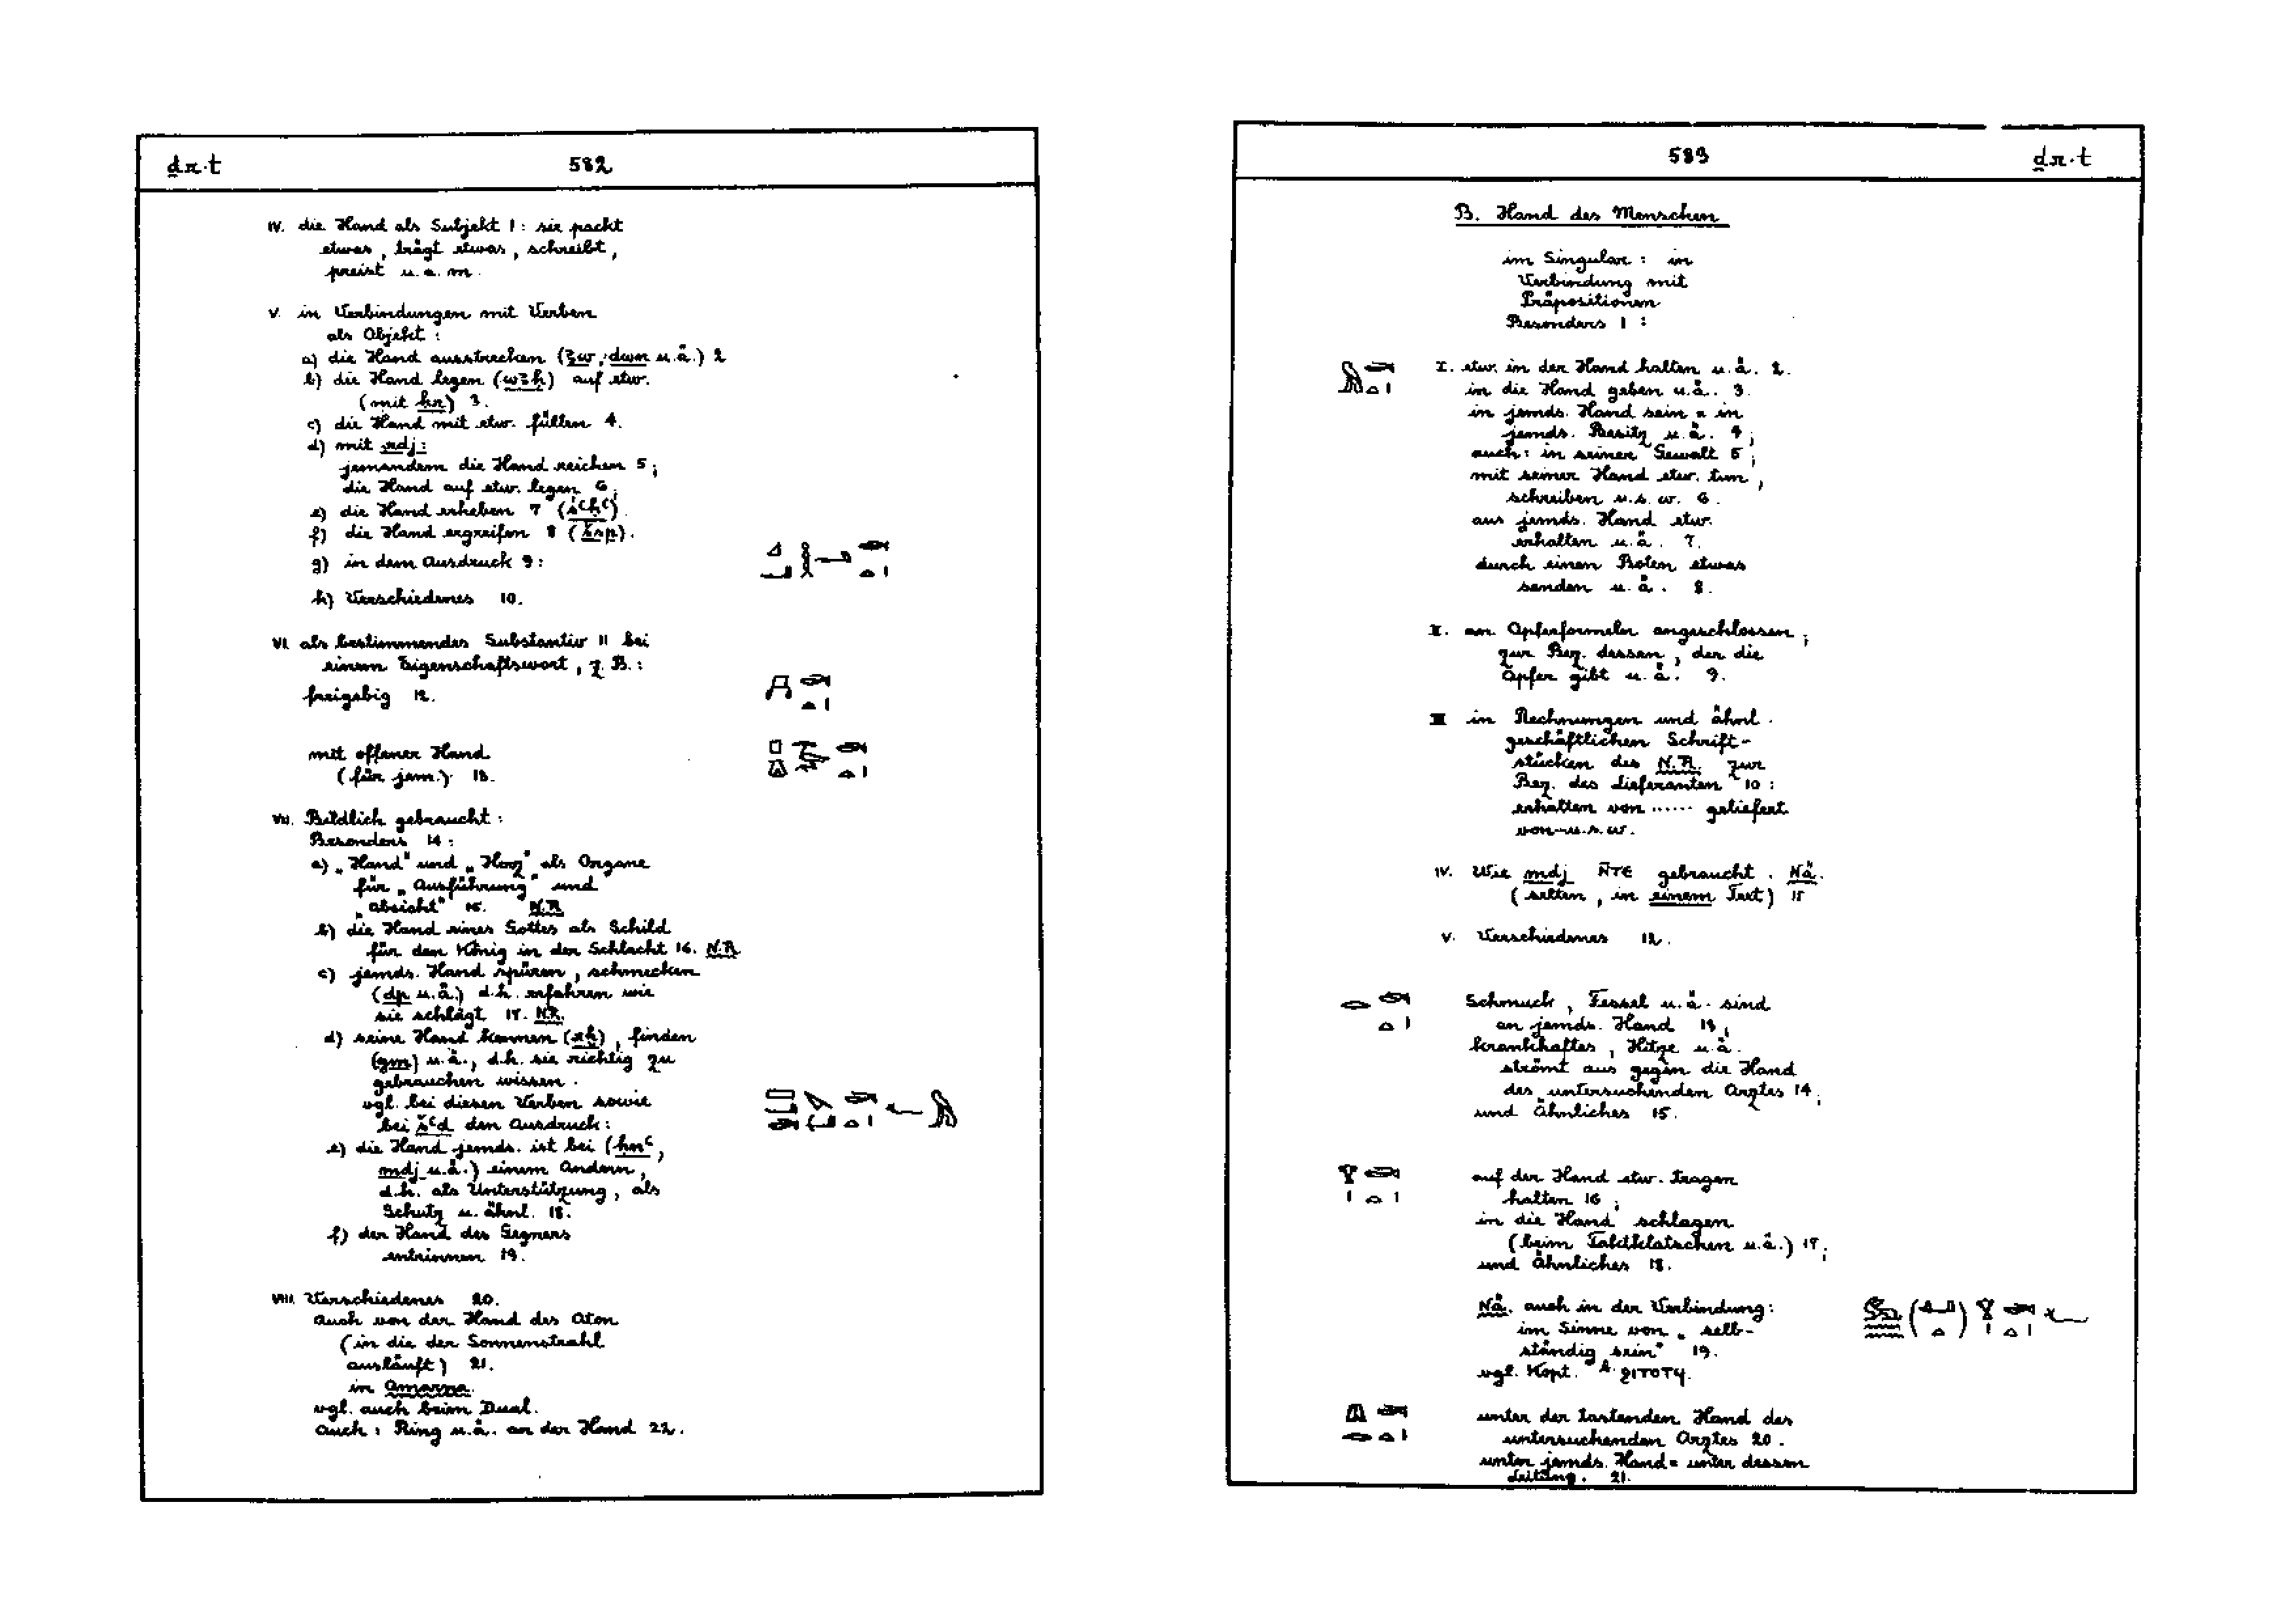 ḏr·t
582
IV. die Hand als Subjekt 1: sie packt
etwas, trägt etwas, schreibt,
preist u.a.m.
V. in Verbindungen mit Verben
als Objekt:
a) die Hand ausstrecken (ꜣw, dwn u.ä.) 2
b) die Hand legen (wꜣḥ) auf etw.
(mit ḥr) 3.
c) die Hand mit etw. füllen 4.
d) mit rdj:
jemandem die Hand reichen 5;
die Hand auf etw. legen 6;
e) die Hand erheben 7 (sꜥḥꜥ).
f) die Hand ergreifen 8 (šsp).
g) in dem Ausdruck 9:
h) Verschiedenes 10.
VI. als bestimmendes Substantiv 11 bei
einem Eigenschaftswort, z.B.:
freigebig 12.
mit offener Hand
(für jem.) 13.
VII. Bildlich gebraucht:
Besonders 14:
a) „Hand" und „Herz" als Organe
für „Ausführung" und
„Absicht" 15. N.R.
b) die Hand eines Gottes als Schild
für den König in der Schlacht 16. N.R.
c) jemds. Hand spüren, schmecken
(dp u.ä.) d.h. erfahren wie
sie schlägt 17. N.R.
d) seine Hand kennen (rḫ), finden
(gm) u.ä., d.h. sie richtig zu
gebrauchen wissen.
vgl. bei diesen Verben sowie
bei šꜥd den Ausdruck:
e) die Hand jemds. ist bei (ḥnꜥ,
mdj u.ä.) einem Andern,
d.h. als Unterstützung, als
Schutz u. ähnl. 18.
f) der Hand des Gegners
entrinnen 19.
VIII. Verschiedenes 20.
auch von der Hand des Aton
(in die der Sonnenstrahl
ausläuft) 21.
in Amarna.
vgl. auch beim Dual.
auch: Ring u.ä. an der Hand 22.
583
ḏr·t
B. Hand des Menschen
im Singular: in
Verbindung mit
Präpositionen
Besonders 1:
I. etw. in der Hand halten u.ä. 2.
in die Hand geben u.ä. 3.
in jemds. Hand sein = in
jemds. Besitz u.ä. 4;
auch: in seiner Gewalt 5;
mit seiner Hand etw. tun,
schreiben u.s.w. 6.
aus jemds. Hand etw.
erhalten u.ä. 7.
durch einen Boten etwas
senden u.ä. 8.
II. an Opferformeln angeschlossen,
zur Bez. dessen, der die
Opfer gibt u.ä. 9.
III in Rechnungen und ähnl.
geschäftlichen Schrift-
stücken des N.R. zur
Bez. des Lieferanten 10:
erhalten von ...... geliefert
von — u.s.w.
IV. Wie mdj ⲚⲦⲈ gebraucht. Nä.
(selten, in einem Text) 11
V. Verschiedenes 12.
Schmuck, Fessel u.ä. sind
an jemds. Hand 13,
krankhaftes, Hitze u.ä.
strömt aus gegen die Hand
des untersuchenden Arztes 14;
und Ähnliches 15.
auf der Hand etw. tragen
halten 16;
in die Hand schlagen
(beim Taktklatschen u.ä.) 17;
und Ähnliches 18.
Nä. auch in der Verbindung:
im Sinne von „selb-
ständig sein" 19.
vgl. Kopt. ϨⲒⲦⲞⲦϤ.
unter der tastenden Hand des
untersuchenden Arztes 20.
unter jemds. Hand = unter dessen
Leitung. 21.